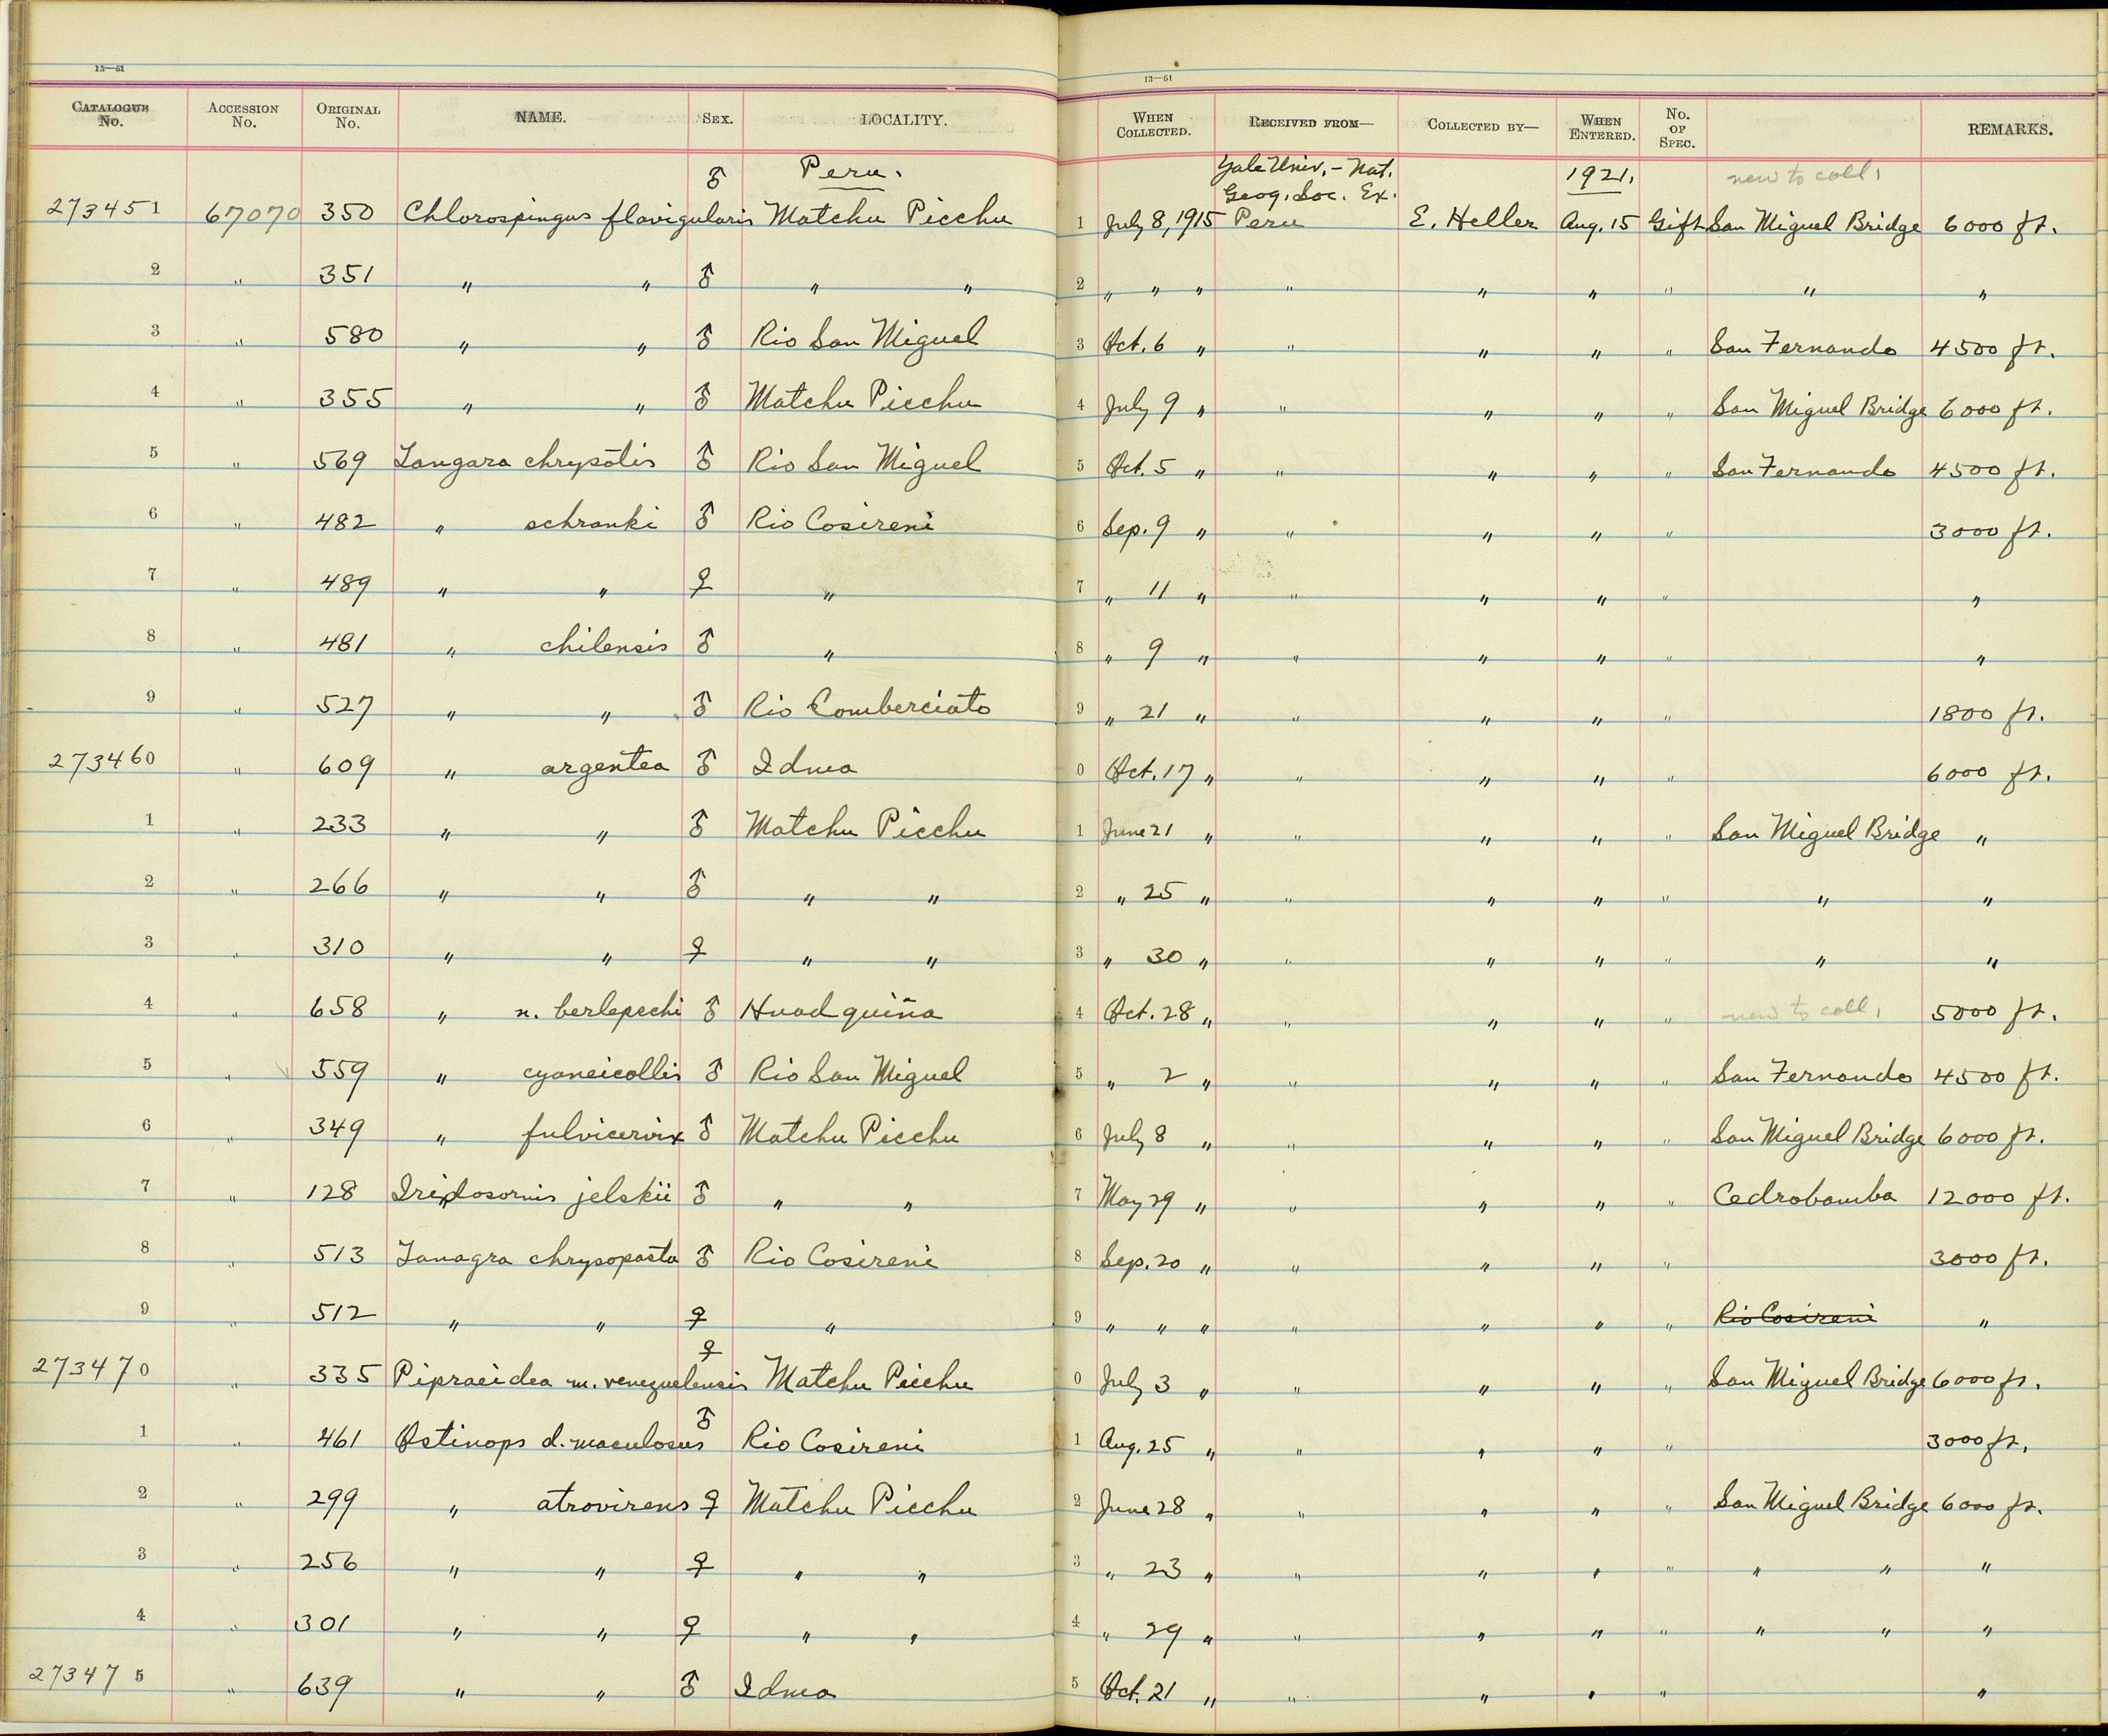 13—51
CATALOGUE No. ACCESSION No. ORIGINAL No. NAME. SEX. LOCALITY.
13—51
WHEN COLLECTED. RECEIVED FROM— COLLECTED BY— WHEN ENTERED. No. OF SPEC. REMARKS.
Peru. Yale Univ. - Nat. Geog. Soc. Ex. 1921. new to coll.
273451 67070 350 Chlorospingus flavigularis ♂ Matchu Picchu 1 July 8, 1915 Peru E. Heller Aug. 15 Gift San Miguel Bridge 6000 ft.
2 " 351 " " ♂ " " 2 " " " " " " " " "
3 " 580 " " ♂ Rio San Miguel 3 Oct. 6 " " " " " San Fernando 4500 ft.
4 " 355 " " ♂ Matchu Picchu 4 July 9 " " " " " San Miguel Bridge 6000 ft.
5 " 569 Tangara chrysotis ♂ Rio San Miguel 5 Oct. 5 " " " " " San Fernando 4500 ft.
6 " 482 " schranki ♂ Rio Cosireni 6 Sep. 9 " " " " " 3000 ft.
7 " 489 " " ♀ " 7 " 11 " " " " " "
8 " 481 " chilensis ♂ " 8 " 9 " " " " " "
9 " 527 " " ♂ Rio Comberciato 9 " 21 " " " " " 1800 ft.
273460 " 609 " argentea ♂ Idma 0 Oct. 17 " " " " " 6000 ft.
1 " 233 " " ♂ Matchu Picchu 1 June 21 " " " " " San Miguel Bridge "
2 " 266 " " ♂ " " 2 " 25 " " " " " " "
3 " 310 " " ♀ " " 3 " 30 " " " " " " "
4 " 658 " n. berlepschi ♂ Huadquiña 4 Oct. 28 " " " " " new to coll. 5000 ft.
5 " 559 " cyaneicollis ♂ Rio San Miguel 5 " 2 " " " " " San Fernando 4500 ft.
6 " 349 " fulvicervix ♂ Matchu Picchu 6 July 8 " " " " " San Miguel Bridge 6000 ft.
7 " 128 Iridosornis jelskii ♂ " " 7 May 29 " " " " " Cedrobamba 12000 ft.
8 " 513 Tanagra chrysopasta ♂ Rio Cosireni 8 Sep. 20 " " " " " 3000 ft.
9 " 512 " " ♀ " 9 " " " " " " " Rio Cosireni "
273470 " 335 Pipraeidea m. venezuelensis ♀ Matchu Picchu 0 July 3 " " " " " San Miguel Bridge 6000 ft.
1 " 461 Ostinops d. maculosus ♂ Rio Cosireni 1 Aug. 25 " " " " " 3000 ft.
2 " 299 " atrovirens ♀ Matchu Picchu 2 June 28 " " " " " San Miguel Bridge 6000 ft.
3 " 256 " " ♀ " " 3 " 23 " " " " " " " "
4 " 301 " " ♀ " " 4 " 29 " " " " " " " "
273475 " 639 " " ♂ Idma 5 Oct. 21 " " " " " "